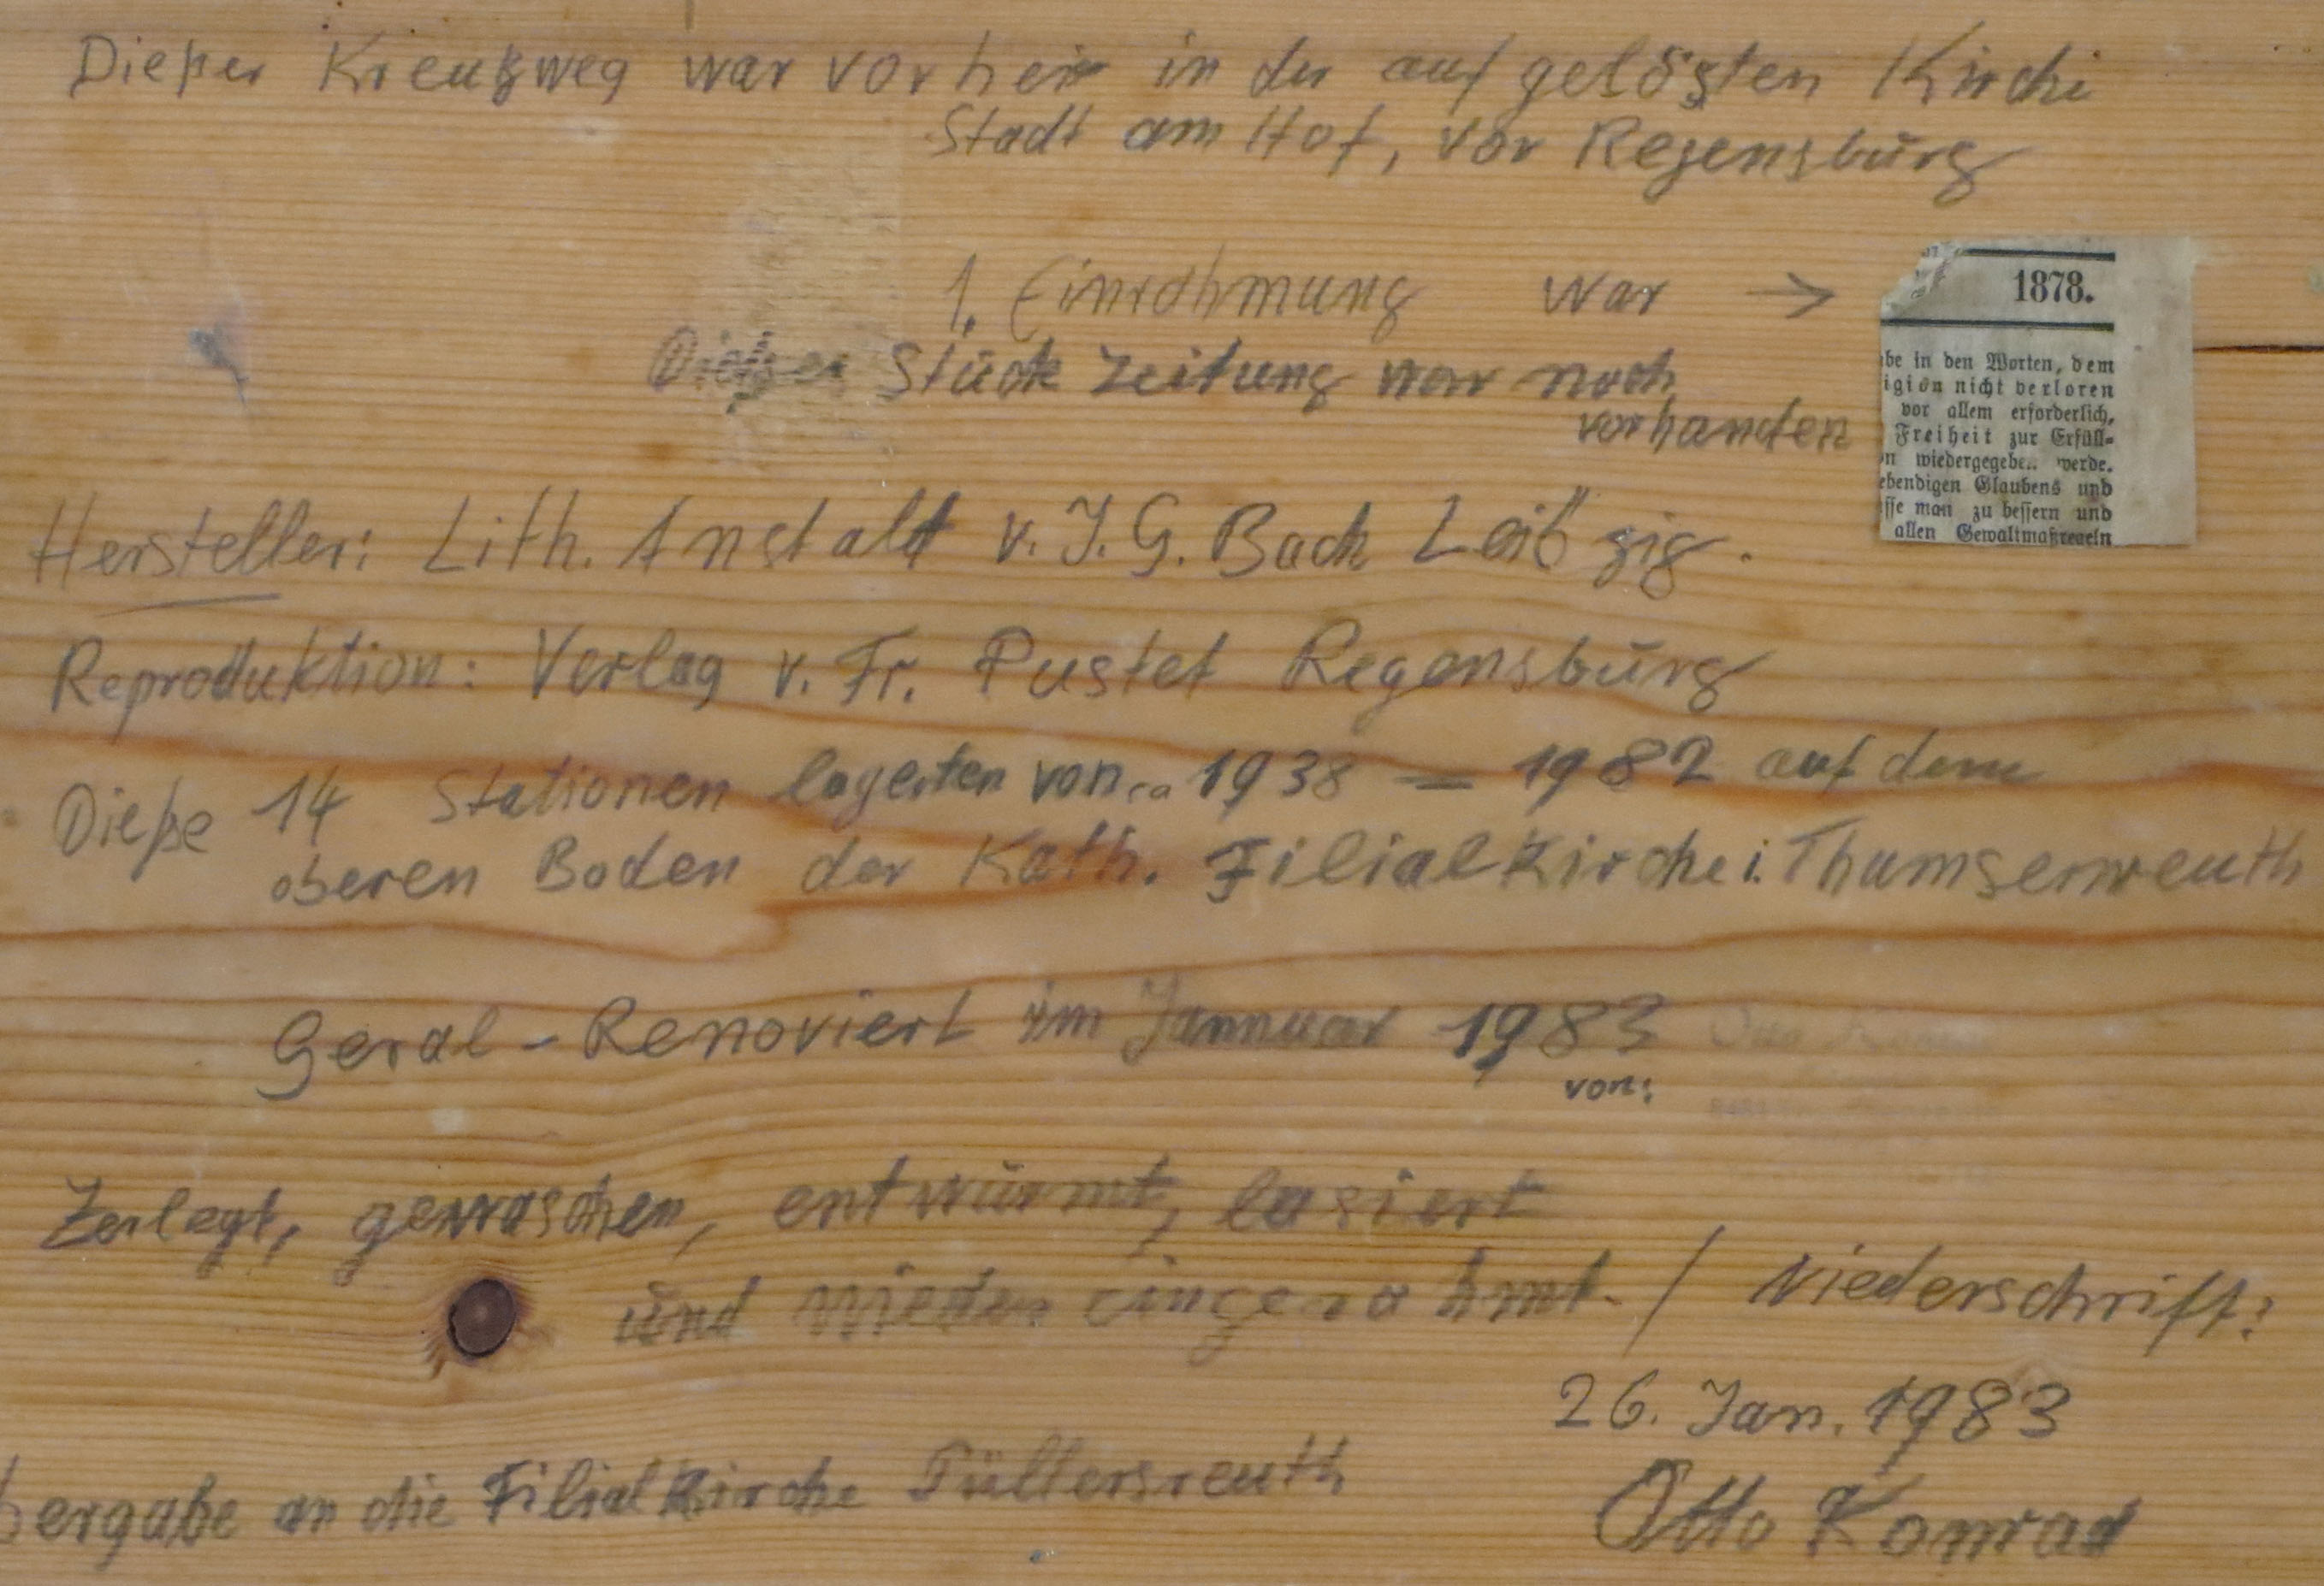 Dießer Kreußweg war vorher in der aufgelösten Kirche
Stadt am Hof, vor Regensburg
1. Einrahmung war →
1878.
Dießer Stück Zeitung war noch
vorhanden
be in den Worten, dem
igion nicht verloren
vor allem erforderlich,
Freiheit zur Erfüll-
n wiedergegeben werde.
ebendigen Glaubens und
sse man zu bessern und
allen Gewaltmaßregeln
Hersteller: Lith. Anstalt v. J. G. Bach Leibzig.
Reproduktion: Verlag v. Fr. Pustet Regensburg
Dieße 14 Stationen lagerten von ca 1938 – 1982 auf dem
oberen Boden der Kath. Filialkirche i. Thumsenreuth
Geral-Renoviert im Jannuar 1983
von:
Zerlegt, gewaschen, entwurmt, lasiert
und wieder eingerahmt. / Niederschrift:
26. Jan. 1983
bergabe an die Filialkirche Püllersreuth
Otto Konrad